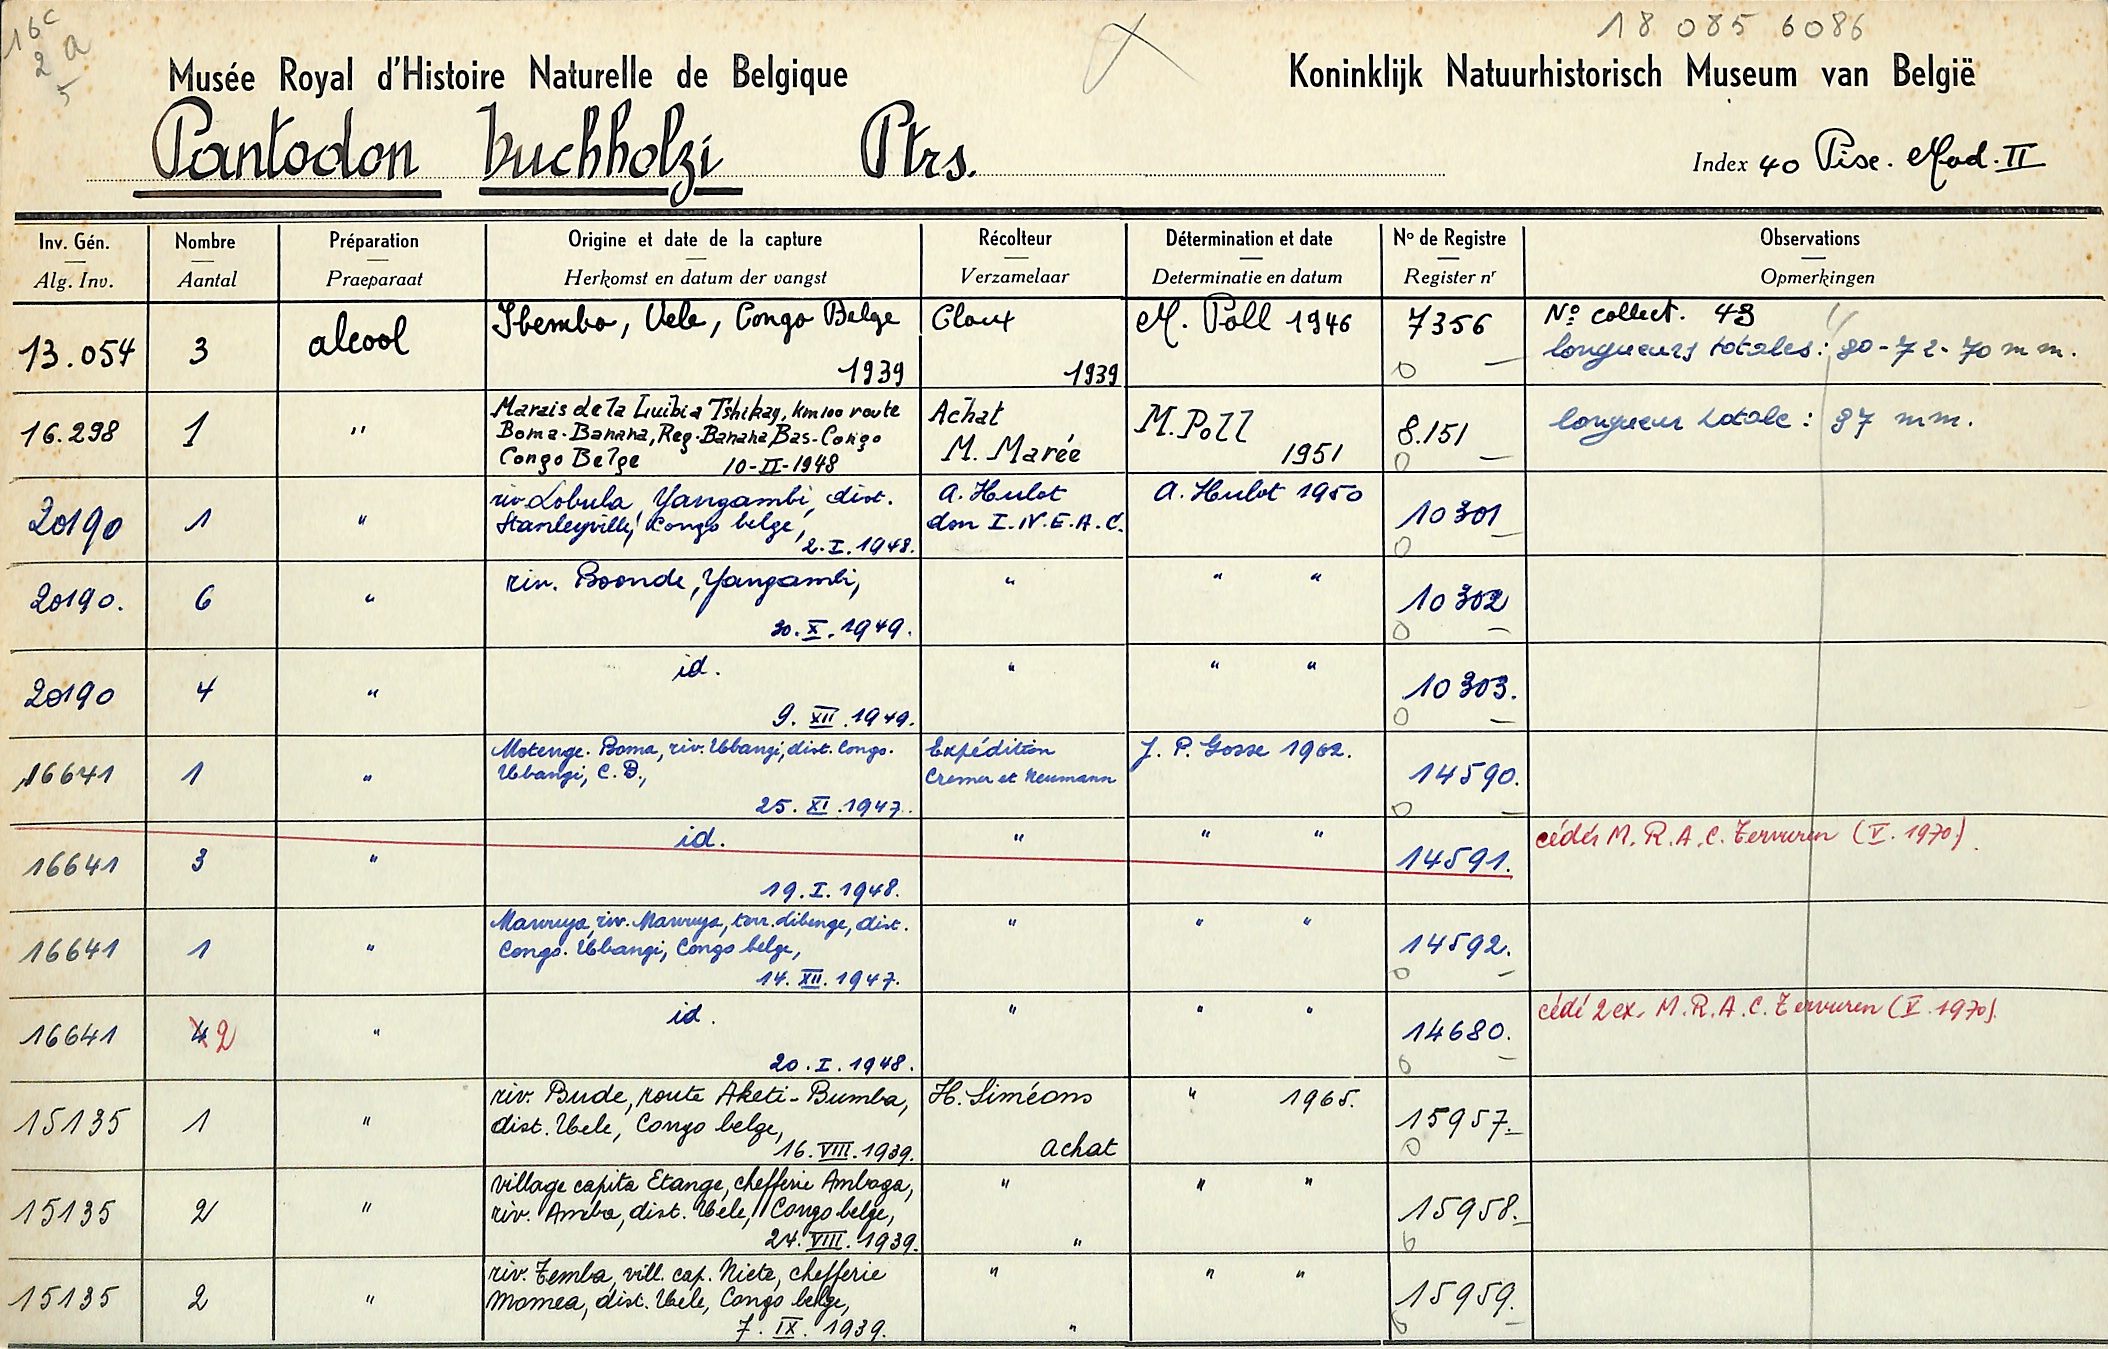 16c
2 a
5
18 085 6086
Musée Royal d'Histoire Naturelle de Belgique
Koninklijk Natuurhistorisch Museum van België
Pantodon buchholzi Ptrs.
Index 40 Pisc. Mad. II
Inv. Gén. Nombre Préparation Origine et date de la capture Récolteur Détermination et date No de Registre Observations
Alg. Inv. Aantal Praeparaat Herkomst en datum der vangst Verzamelaar Determinatie en datum Register nr Opmerkingen
13.054 3 alcool Ibembo, Uele, Congo Belge Cloux M. Poll 1946 7356 No collect. 43
1939 1939 0 – longueurs totales: 80-72-70 mm.
16.298 1 " Marais de la Luibi a Tshikay, km 100 route Achat M. Poll 8.151 longueur totale: 97 mm.
Boma-Banana, Reg. Banana Bas-Congo M. Marée 1951 0 –
Congo Belge 10-II-1948
20190 1 " riv Lobula, Yangambi, dist. A. Hulot A. Hulot 1950 10301
Stanleyville, Congo belge, don I.N.E.A.C. 0 –
2.I.1948.
20190. 6 " riv. Boonde, Yangambi, " " " 10302
30.X.1949. 0 –
20190 4 " id. " " " 10303.
9.XII.1949. 0 –
16641 1 " Motenge-Boma, riv. Ubangi, dist. Congo- Expédition J. P. Gosse 1962. 14590.
Ubangi, C.B., Cremer et Neumann 0 –
25.XI.1947.
16641 3 " id. " " " 14591. cédés M.R.A.C. Tervuren (V.1970).
19.I.1948.
16641 1 " Mawuya, riv. Mawuya, terr. Libenge, dist. " " " 14592.
Congo-Ubangi, Congo belge, 0 –
14.XII.1947.
16641 4 2 " id. " " " 14680. cédé 2 ex. M.R.A.C. Tervuren (V.1970).
20.I.1948. 0 –
15135 1 " riv. Bude, route Aketi-Bumba, H. Siméons " 1965. 15957.
dist. Uele, Congo belge, 0 –
16.VIII.1939. achat
15135 2 " village capita Etange, chefferie Ambaga, " " " 15958.
riv. Amba, dist. Uele, Congo belge, 0 –
24.VIII.1939. "
15135 2 " riv. Temba, vill. cap. Nieta, chefferie " " " 15959.
Momea, dist. Uele, Congo belge, 0 –
7.IX.1939. "